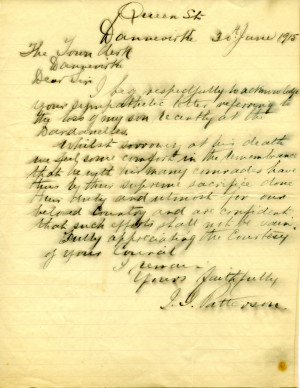 Queen St
Dannevirke 30th June 1915
The Town Clerk
Dannevirke
Dear Sir
I beg respectfully to acknowledge
your sympathetic letter referring to
the loss of my son recently at the
Dardanelles.
Whilst sorrowing at his death
we feel some comfort in the remembrance
that he with his many comrades have
thus by their supreme sacrifice done
their duty and utmost for our
beloved Country and are confident
that such efforts shall not be vain.
Fully appreciating the courtesy
of your Council
I remain
Yours faithfully
Patterson.